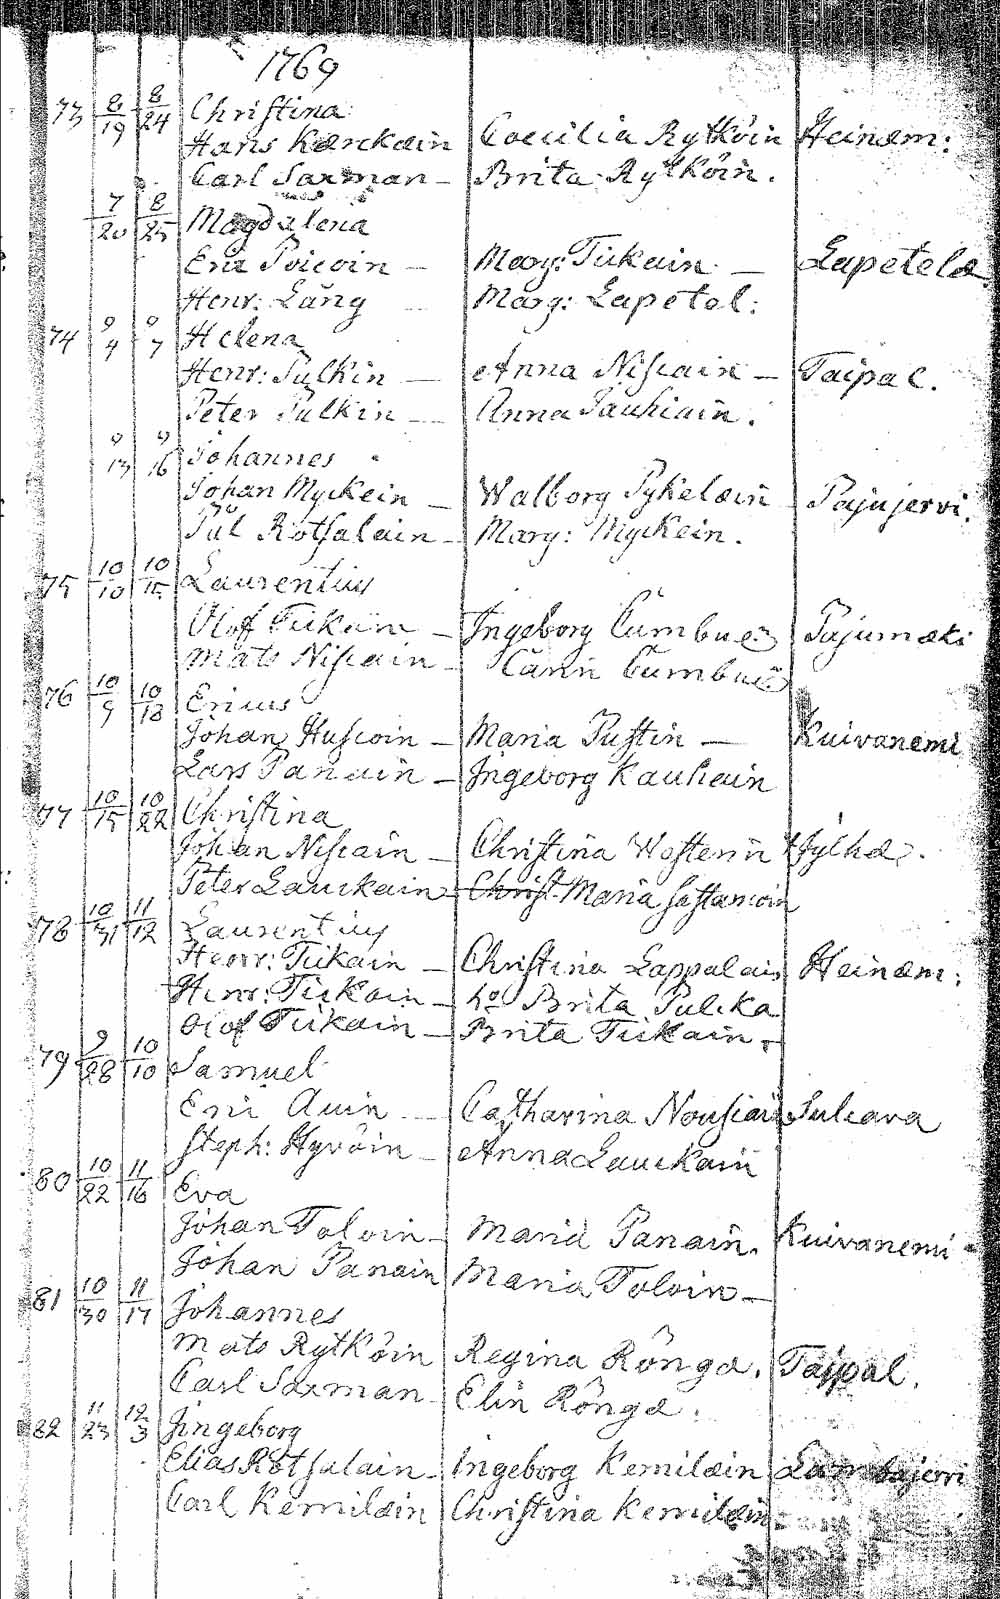 1769
73 8/19 8/24 Christina
Hans Kærckæin Coecilia Rytköin Heinæm:
Carl Saxman – Brita Rytköin.
7/20 8/25 Magdalena
Eric Poicoin – Marg: Tiikain – Lapetelæ
Henr: Lång – Marg: Lapetel:
74 9/4 9/7 Helena
Henr: Pulkin – Anna Niscain – Taipal.
Peter Pulkin – Anna Pauhiain.
9/13 9/16 Johannes
Johan Myckein – Walborg Pykelæin Pajujervi.
Pål Rötsalain – Marg: Myckein.
75 10/10 10/15 Laurentius
Olof Tiikain – Ingeborg Cumbu Pajumæki
Mats Niscain – Carin Cumbu
76 10/9 10/18 Ericus
Johan Huscoin – Maria Pustin – Kuivanemi
Lars Panain – Ingeborg Kauhain
77 10/15 10/22 Christina
Johan Niscain – Christina Westerin Jylhæ.
Peter Lauckain – Christ. Maria Sastamoin
78 10/31 11/12 Laurentius
Henr: Tiikain – Christina Lappalain Heinæm:
Henr: Tiikain – ho Brita Pulcka
Olof Tiikain – Brita Tiikain.
79 9/28 10/10 Samuel
Eric Auin – Catharina Nousiain Sulcava
Steph: Hyvöin – Anna Lauckain
80 10/22 11/16 Eva
Johan Toloin – Maria Panain. Kuivanemi
Johan Panain Maria Toloin –
81 10/30 11/17 Johannes
Mats Rytköin Regina Röngæ. Taipal.
Carl Saxman – Elin Röngæ.
82 11/23 12/3 Ingeborg
Elias Rötsalain – Ingeborg Kemilæin Lambajerri
Carl Kemilæin Christina Kemilæin